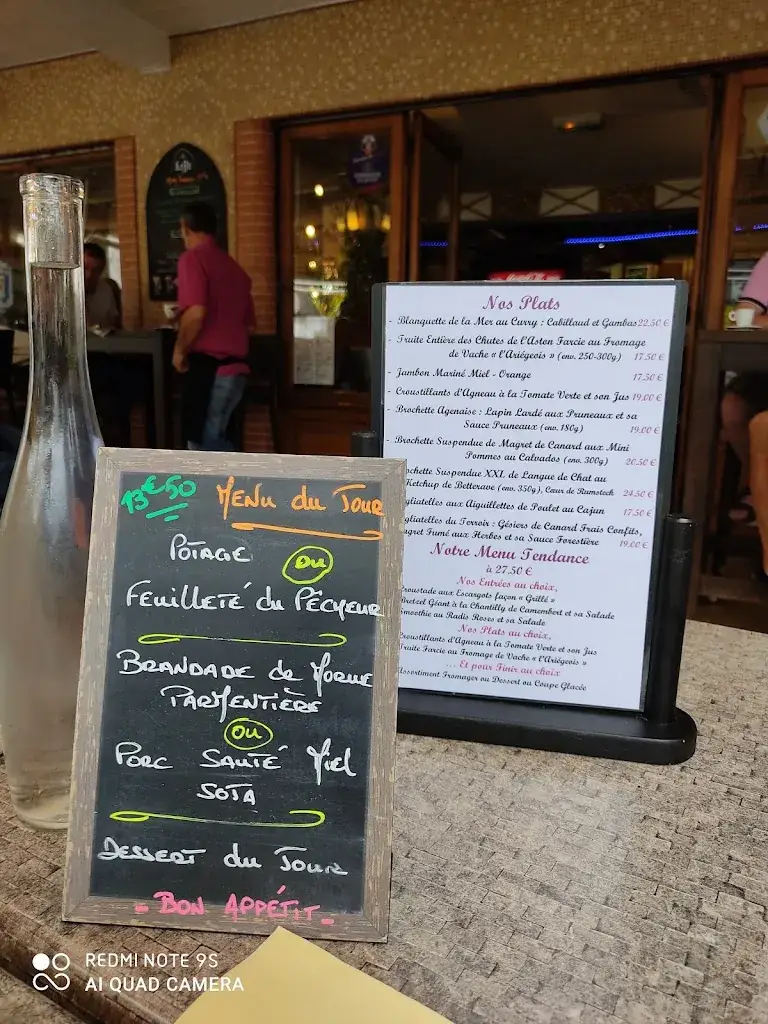 13€50 MENU du JOUR
POTAGE
OU
FEUILLETÉ du PÊCHEUR
BRANDADE de MORUE
PARMENTIÈRE
OU
PORC SAUTÉ MIEL
SOJA
DESSERT du JOUR
- BON APPÉTIT -
Nos Plats
- Blanquette de la Mer au Curry : Cabillaud et Gambas 22.50 €
- Truite Entière des Chutes de l'Aston Farcie au Fromage
de Vache « l'Ariégeois » (env. 250-300g) 17.50 €
- Jambon Mariné Miel - Orange 17.50 €
- Croustillants d'Agneau à la Tomate Verte et son Jus 19.00 €
- Brochette Agenaise : Lapin Lardé aux Pruneaux et sa
Sauce Pruneaux (env. 180g) 19.00 €
- Brochette Suspendue de Magret de Canard aux Mini
Pommes au Calvados (env. 300g) 20.50 €
ochette Suspendue XXL de Langue de Chat au
Ketchup de Betterave (env. 350g), Cœur de Rumsteck 24.50 €
gliatelles aux Aiguillettes de Poulet au Cajun 17.50 €
gliatelles du Terroir : Gésiers de Canard Frais Confits,
agret Fumé aux Herbes et sa Sauce Forestière 19.00 €
Notre Menu Tendance
à 27.50 €
Nos Entrées au choix,
Croustade aux Escargots façon « Grillé »
Bretzel Géant à la Chantilly de Camembert et sa Salade
Smoothie au Radis Roses et sa Salade
Nos Plats au choix,
Croustillants d'Agneau à la Tomate Verte et son Jus
Truite Farcie au Fromage de Vache « l'Ariégeois »
... Et pour Finir au choix
Assortiment Fromager ou Dessert ou Coupe Glacée
REDMI NOTE 9S
AI QUAD CAMERA